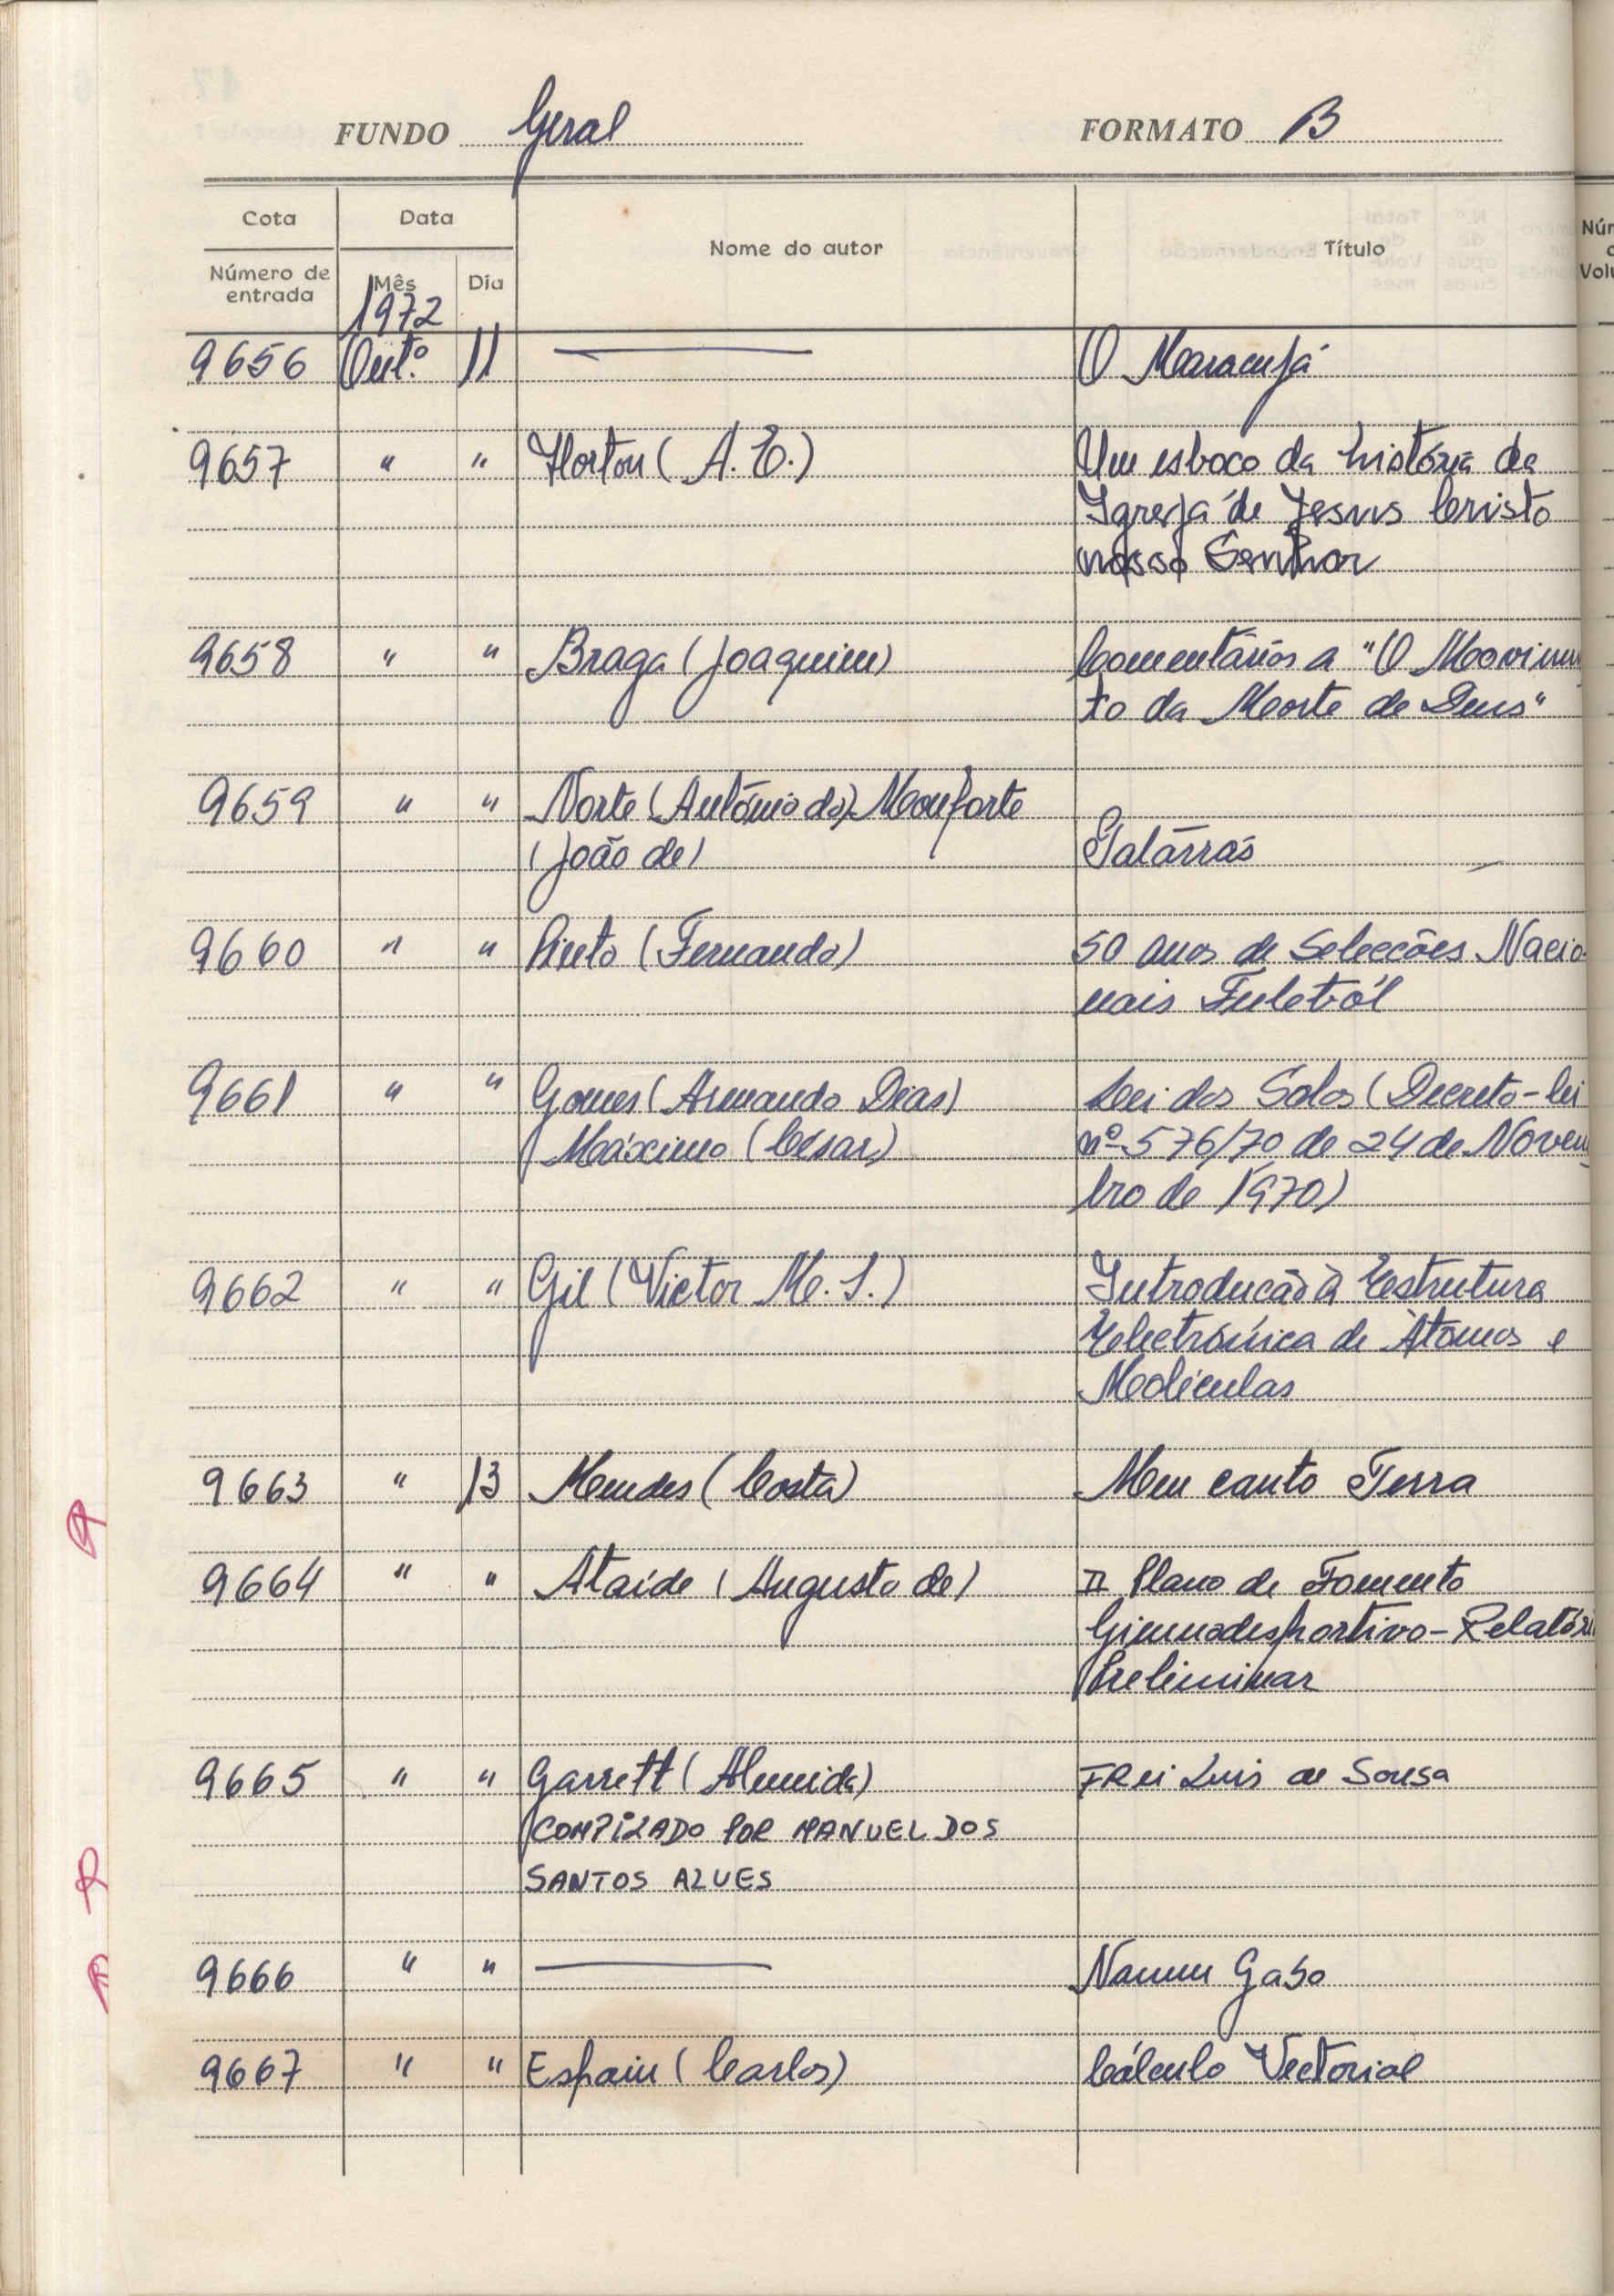 FUNDO Geral FORMATO B
Cota Data Nome do autor Título
Número de entrada Mês Dia
1972
9656 Out.º 11 O Maracujá
9657 " " Horton (A. E.) Um esboço da história da
Igreja de Jesus Cristo
nosso Senhor
9658 " " Braga (Joaquim) Comentários a "O Movimen
to da Morte de Deus"
9659 " " Norte (António do) Monforte
(João de) Galárrás
9660 " " Pinto (Fernando) 50 anos de Selecções Nacio-
nais Futeból
9661 " " Gomes (Armando Dias) Lei dos Solos (Decreto-lei
Máximo (César) nº 576/70 de 24 de Novem
bro de 1970)
9662 " " Gil (Victor M. S.) Introdução à Estrutura
Electrónica de Àtomos e
Moléculas
9663 " 13 Mendes (Costa) Meu canto Terra
9664 " " Ataíde (Augusto de) II Plano de Fomento
Gimnodesportivo - Relatóri
Preliminar
9665 " " Garrett (Almeida) FRei Luis de Sousa
COMPILADO POR MANUEL DOS
SANTOS ALVES
9666 " " Naum Gabo
9667 " " Espain (Carlos) Cálculo Vectorial